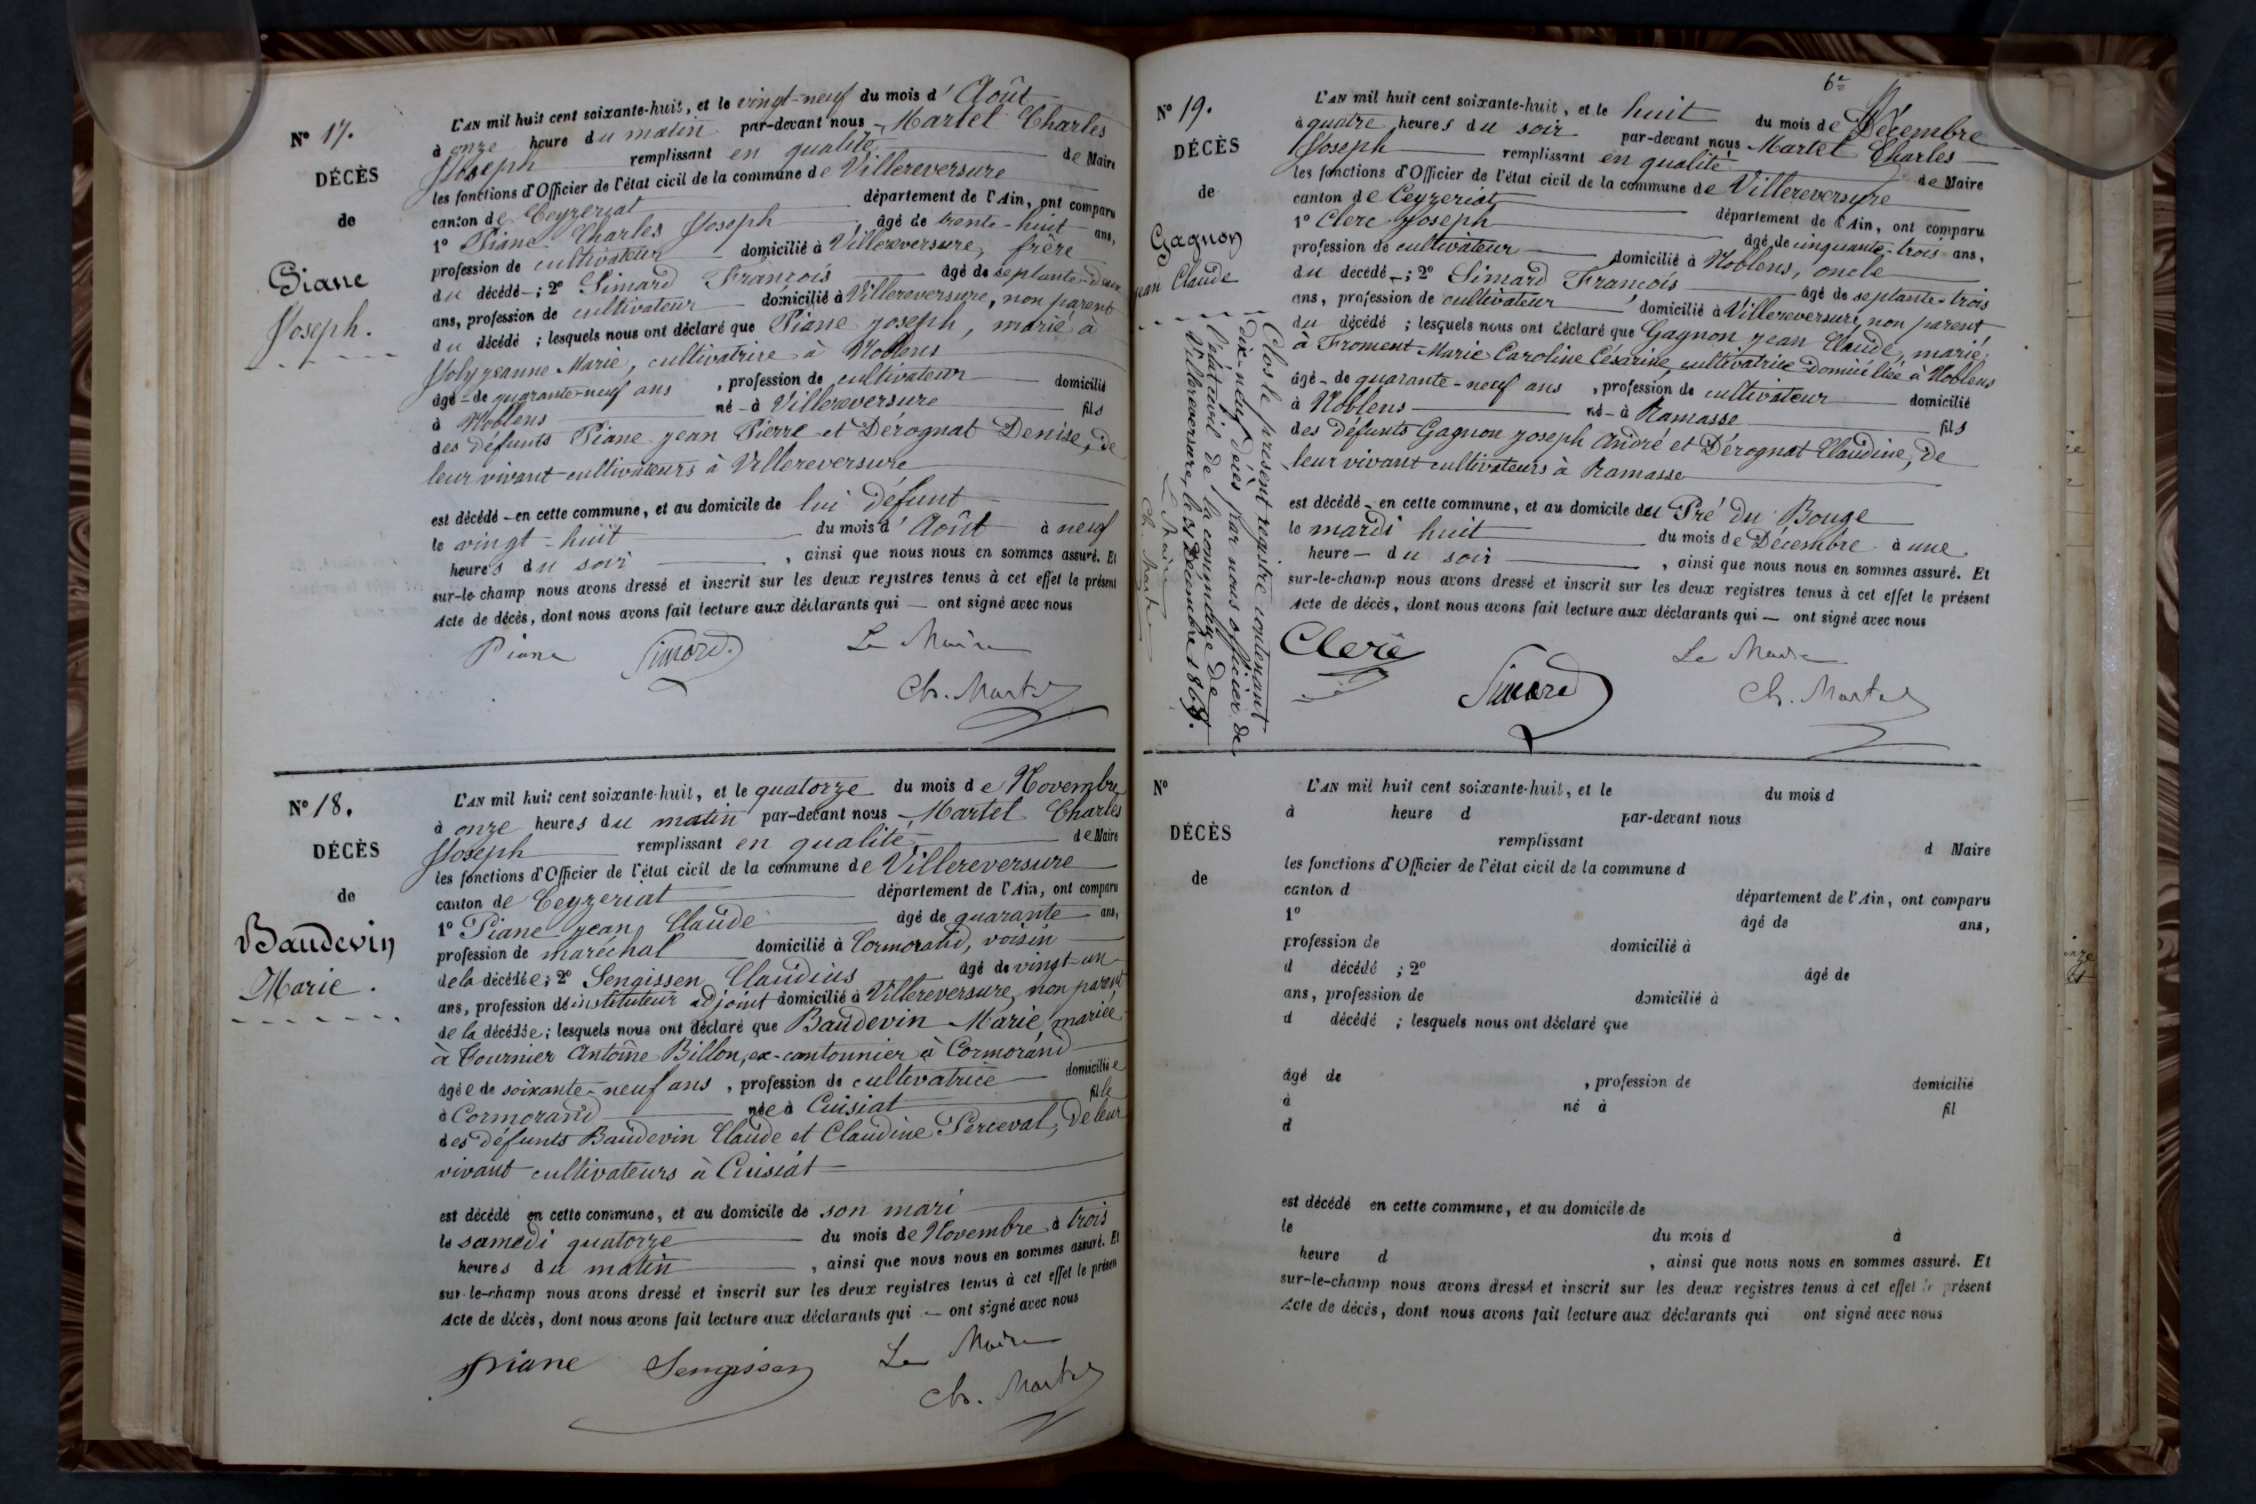 N° 17.
DÉCÈS
de
Piane
Joseph.
L'AN mil huit cent soixante-huit, et le vingt-neuf du mois d'Août
à onze heure du matin par-devant nous Martel Charles
Joseph remplissant en qualité de Maire
les fonctions d'Officier de l'état civil de la commune de Villereversure
canton de Ceyzeriat département de l'Ain, ont comparu
1° Piane Charles Joseph âgé de trente-huit ans,
profession de cultivateur domicilié à Villereversure, frère
du décédé ; 2° Simard François âgé de septante-deux
ans, profession de cultivateur domicilié à Villereversure, non parent
du décédé ; lesquels nous ont déclaré que Piane Joseph, marié à
Joly Jeanne Marie, cultivatrice à Noblens
âgé de quarante-neuf ans, profession de cultivateur domicilié
à Noblens né à Villereversure fils
des défunts Piane Jean Pierre et Dérognat Denise, de
leur vivant cultivateurs à Villereversure
est décédé en cette commune, et au domicile de lui défunt
le vingt-huit du mois d'Août à neuf
heures du soir, ainsi que nous nous en sommes assuré. Et
sur-le-champ nous avons dressé et inscrit sur les deux registres tenus à cet effet le présent
Acte de décès, dont nous avons fait lecture aux déclarants qui ont signé avec nous
Piane Simard. Le Maire
Ch. Martel
N° 18.
DÉCÈS
de
Baudevin
Marie.
L'AN mil huit cent soixante-huit, et le quatorze du mois de Novembre
à onze heures du matin par-devant nous Martel Charles
Joseph remplissant en qualité de Maire
les fonctions d'Officier de l'état civil de la commune de Villereversure
canton de Ceyzeriat département de l'Ain, ont comparu
1° Piane Jean Claude âgé de quarante ans,
profession de maréchal domicilié à Cormorand, voisin
de la décédée ; 2° Sengissen Claudius âgé de vingt-un
ans, profession d'instituteur adjoint domicilié à Villereversure, non parent
de la décédée ; lesquels nous ont déclaré que Baudevin Marie, mariée
à Tournier Antoine Billon, ex-cantonnier à Cormorand
âgée de soixante-neuf ans, profession de cultivatrice domiciliée
à Cormorand née à Cuisiat fille
des défunts Baudevin Claude et Claudine Perceval, de leur
vivant cultivateurs à Cuisiat
est décédé en cette commune, et au domicile de son mari
le samedi quatorze du mois de Novembre à trois
heures du matin, ainsi que nous nous en sommes assuré. Et
sur-le-champ nous avons dressé et inscrit sur les deux registres tenus à cet effet le présent
Acte de décès, dont nous avons fait lecture aux déclarants qui ont signé avec nous
Piane Sengissen Le Maire
Ch. Martel
N° 19.
DÉCÈS
de
Gagnon
Jean Claude
Clos le présent registre contenant
dix-neuf décès par nous officier de
l'état civil de la commune de
Villereversure, le 31 Décembre 1868.
Le Maire
Ch. Martel
L'AN mil huit cent soixante-huit, et le huit du mois de Décembre
à quatre heures du soir par-devant nous Martel Charles
Joseph remplissant en qualité de Maire
les fonctions d'Officier de l'état civil de la commune de Villereversure
canton de Ceyzeriat département de l'Ain, ont comparu
1° Clerc Joseph âgé de cinquante-trois ans,
profession de cultivateur domicilié à Noblens, oncle
du décédé ; 2° Simard François âgé de septante-trois
ans, profession de cultivateur domicilié à Villereversure, non parent
du décédé ; lesquels nous ont déclaré que Gagnon Jean Claude, marié
à Froment Marie Caroline Césarine, cultivatrice domiciliée à Noblens
âgé de quarante-neuf ans, profession de cultivateur domicilié
à Noblens né à Ramasse fils
des défunts Gagnon Joseph André et Dérognat Claudine, de
leur vivant cultivateurs à Ramasse
est décédé en cette commune, et au domicile du Pré du Bouge
le mardi huit du mois de Décembre à une
heure du soir, ainsi que nous nous en sommes assuré. Et
sur-le-champ nous avons dressé et inscrit sur les deux registres tenus à cet effet le présent
Acte de décès, dont nous avons fait lecture aux déclarants qui ont signé avec nous
Clerc Simard Le Maire
Ch. Martel
N°
DÉCÈS
de
L'AN mil huit cent soixante-huit, et le du mois d
à heure d par-devant nous
remplissant d Maire
les fonctions d'Officier de l'état civil de la commune d
canton d département de l'Ain, ont comparu
1° âgé de ans,
profession de domicilié à
d décédé ; 2° âgé de
ans, profession de domicilié à
d décédé ; lesquels nous ont déclaré que
âgé de , profession de domicilié
à né à fil
d
est décédé en cette commune, et au domicile de
le du mois d à
heure d , ainsi que nous nous en sommes assuré. Et
sur-le-champ nous avons dressé et inscrit sur les deux registres tenus à cet effet le présent
Acte de décès, dont nous avons fait lecture aux déclarants qui ont signé avec nous